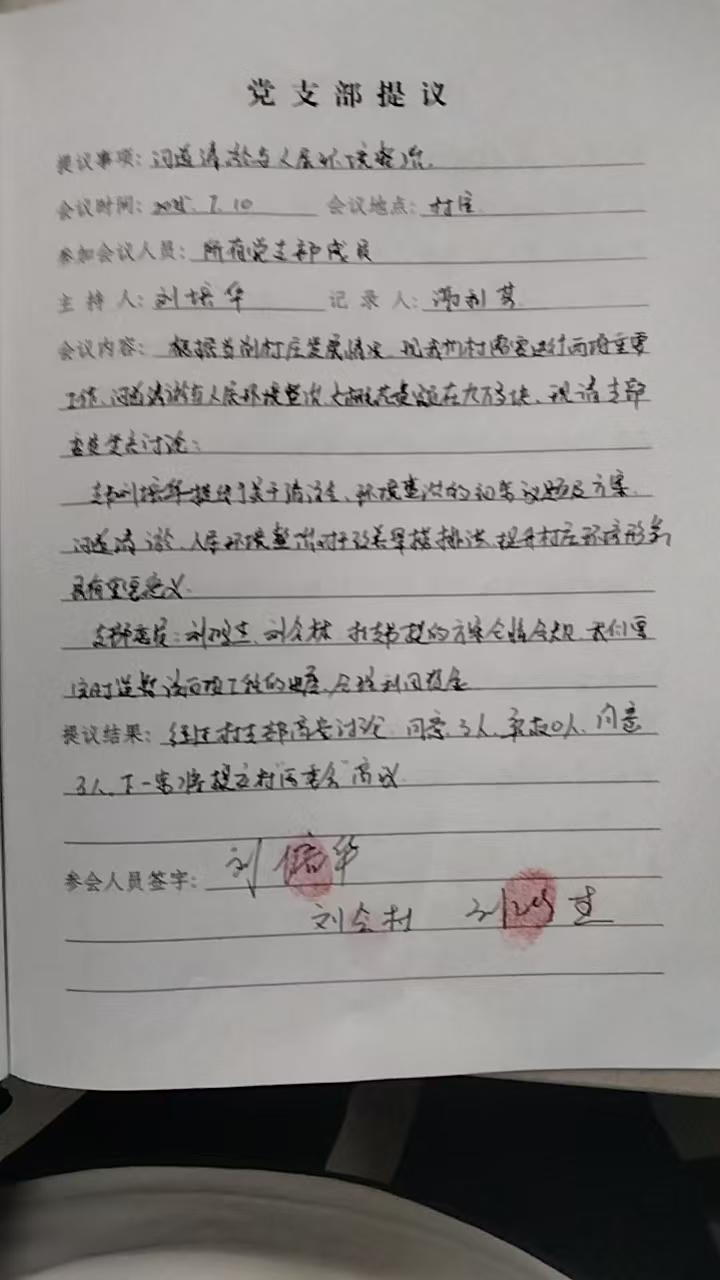 党支部提议
提议事项: 河道清淤与人居环境整治.
会议时间: 2025.7.10 会议地点: 村庄
参加会议人员: 所有党支部成员
主持人: 刘培华 记录人:
会议内容: 根据当前村庄发展情况, 现我们村需要进行两项重要
工作, 河道清淤与人居环境整治, 大概花费 在九万多块, 现请支部
讨论:
支书刘培华提给了关于清淤、环境整治的初步议题及方案.
河道清淤、人居环境整治对于改善旱涝排洪, 提升村庄环境形象
具有重要意义.
支部委员: 刘 刘全林 村支书提的方案合情合规, 我们要
这两项工程的进度, 合理利用资金
提议结果: 经过村支部 讨论, 同意3人, 弃权0人, 同意
3人, 下一步将提交村"两委会"商议
参会人员签字: 刘培华
刘全林